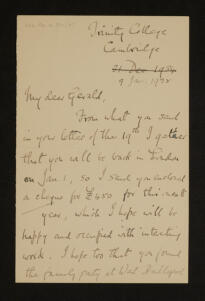 Trinity College
Cambridge
31 Dec 1934
9 Jan. 1935
My dear Gerald,
From what you said
in your letter of the 19th I gather
that you will be back in London
on Jan 1, so I send you enclosed
a cheque for £450 for this next
year, which I hope will be
happy and occupied with interesting
work. I hope too that you found
the family party at